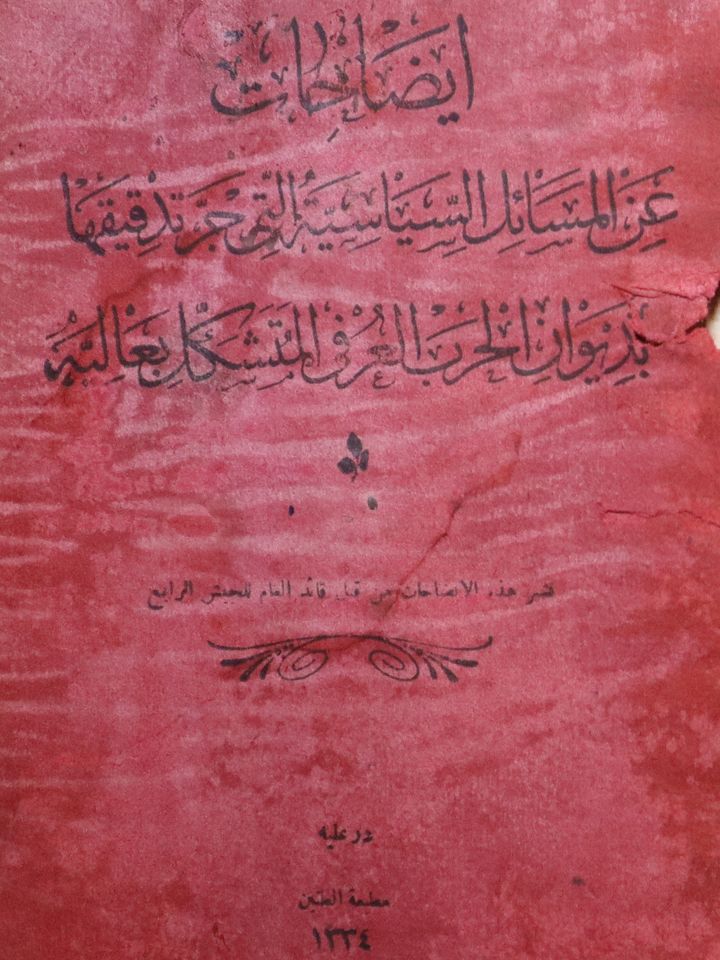 ايضَاحَات
عَنِ المَسَائِلِ السِّيَاسِيَّةِ الَّتِى جَرَّ تَدْقِيقَهَا
بِدِيوَانِ الحَرْبِ العُرْفِى المُتَشَكِّلِ بِعَالِيَه
نشر هذه الايضاحات من قبل قائد العام للجيش الرابع
در عليه
مطبعة الطنين
١٣٣٤